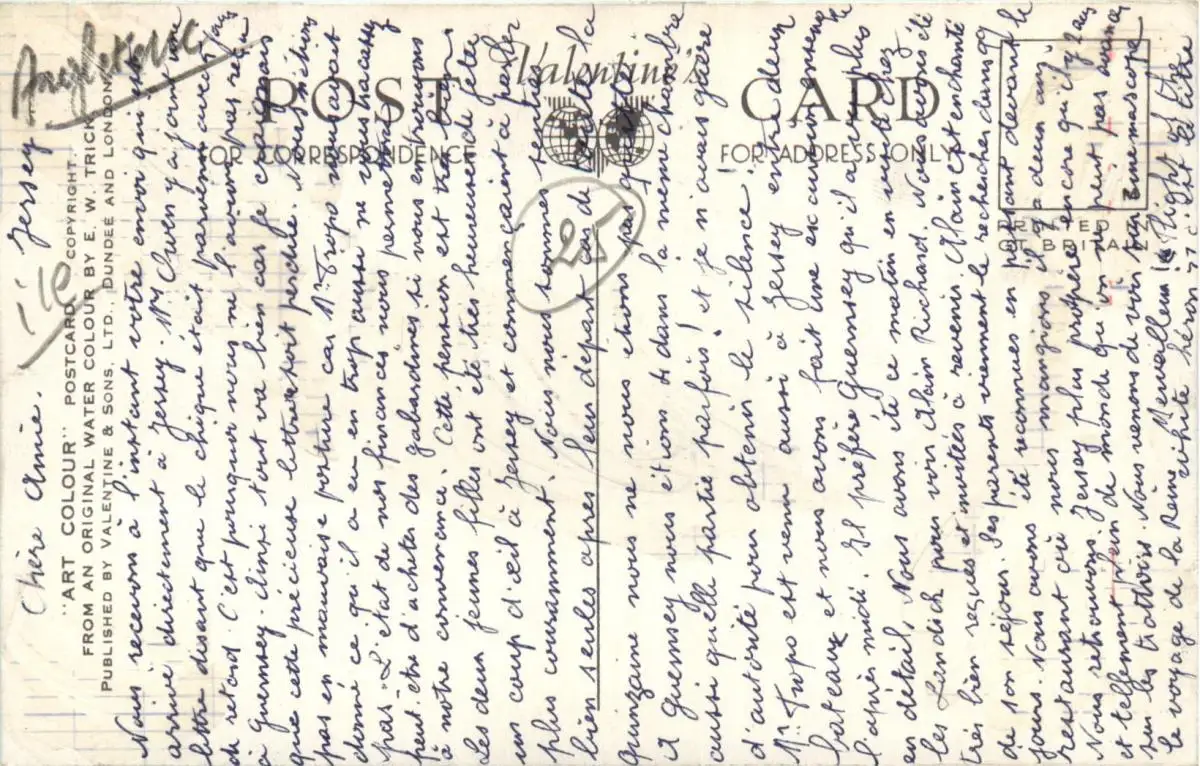 Angleterre
Jersey
Chère amie.
"ART COLOUR" POSTCARD COPYRIGHT.
FROM AN ORIGINAL WATER COLOUR BY E. W. TRICK
PUBLISHED BY VALENTINE & SONS, LTD., DUNDEE AND LONDON
POST CARD
Valentine's
FOR CORRESPONDENCE
FOR ADDRESS ONLY
PRINTED IN
GT BRITAIN
25
Nous recevons à l'instant votre envoi qui est
arrivé directement à Jersey. Mr Owen y a joint une
lettre disant que le chèque était parvenu avec jours
de retard. C'est pourquoi nous ne l'avions pas reçu
à Guernsey. Ainsi tout va bien car je craignais
que cette précieuse lettre soit perdue. Nous n'étions
pas en mauvaise posture car Mr Tropo nous avait
donné ce qu'il a eu en trop aussi ne vous tracassez
pas. L'état de nos finances nous permettra
peut-être d'acheter des gabardines si nous en trouvons
à notre convenance. Cette pension est très bien.
Les deux jeunes filles ont été très heureuses de jeter
un coup d'œil à Jersey et commençaient à parler
plus couramment. Nous nous sommes senties
bien seules après leur départ
quinzaine nous ne nous étions pas quittées
à Guernsey nous étions dans la même chambre
aussi qu'elle partie parfois! et je n'avais guère
d'autorité pour obtenir le silence!
Mr Tropo est venu aussi à Jersey entre deux
bateaux et nous avons fait une excursion
l'après midi. Il préfère Guernsey qu'il a vu plus
en détail. Nous avons été ce matin en visite chez
les Landick pour voir Alain Richard. Nous avons été
très bien reçues et invitées à revenir. Alain est enchanté
de son séjour. Ses parents viennent le rechercher dans
jours. Nous avons été reconnues en passant devant le
restaurant où nous mangions il y a deux ans.
Nous retrouvons Jersey plus prospère encore qu'il y 2 ans
et tellement plein de monde qu'on ne peut pas avancer
sur les trottoirs. Nous venons de voir en Cinémascope
le voyage de la Reine. Merveilleux